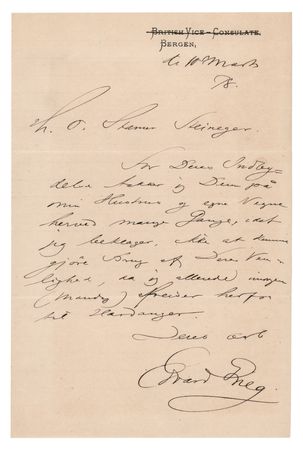 BRITISH VICE-CONSULATE.
BERGEN,
d. 10de Marts
78.
H. O. Steineger.
For Deres Indby-
delse takker jeg Dem på
min Hustrus og egne Vegne
herved mange Gange, idet
jeg beklager, ikke at kunne
gjöre Brug af Deres Ven-
lighed, da jeg allerede imorgen
(Mandag) afreiser herfra
til Hardanger.
Deres ærb
Edvard Grieg